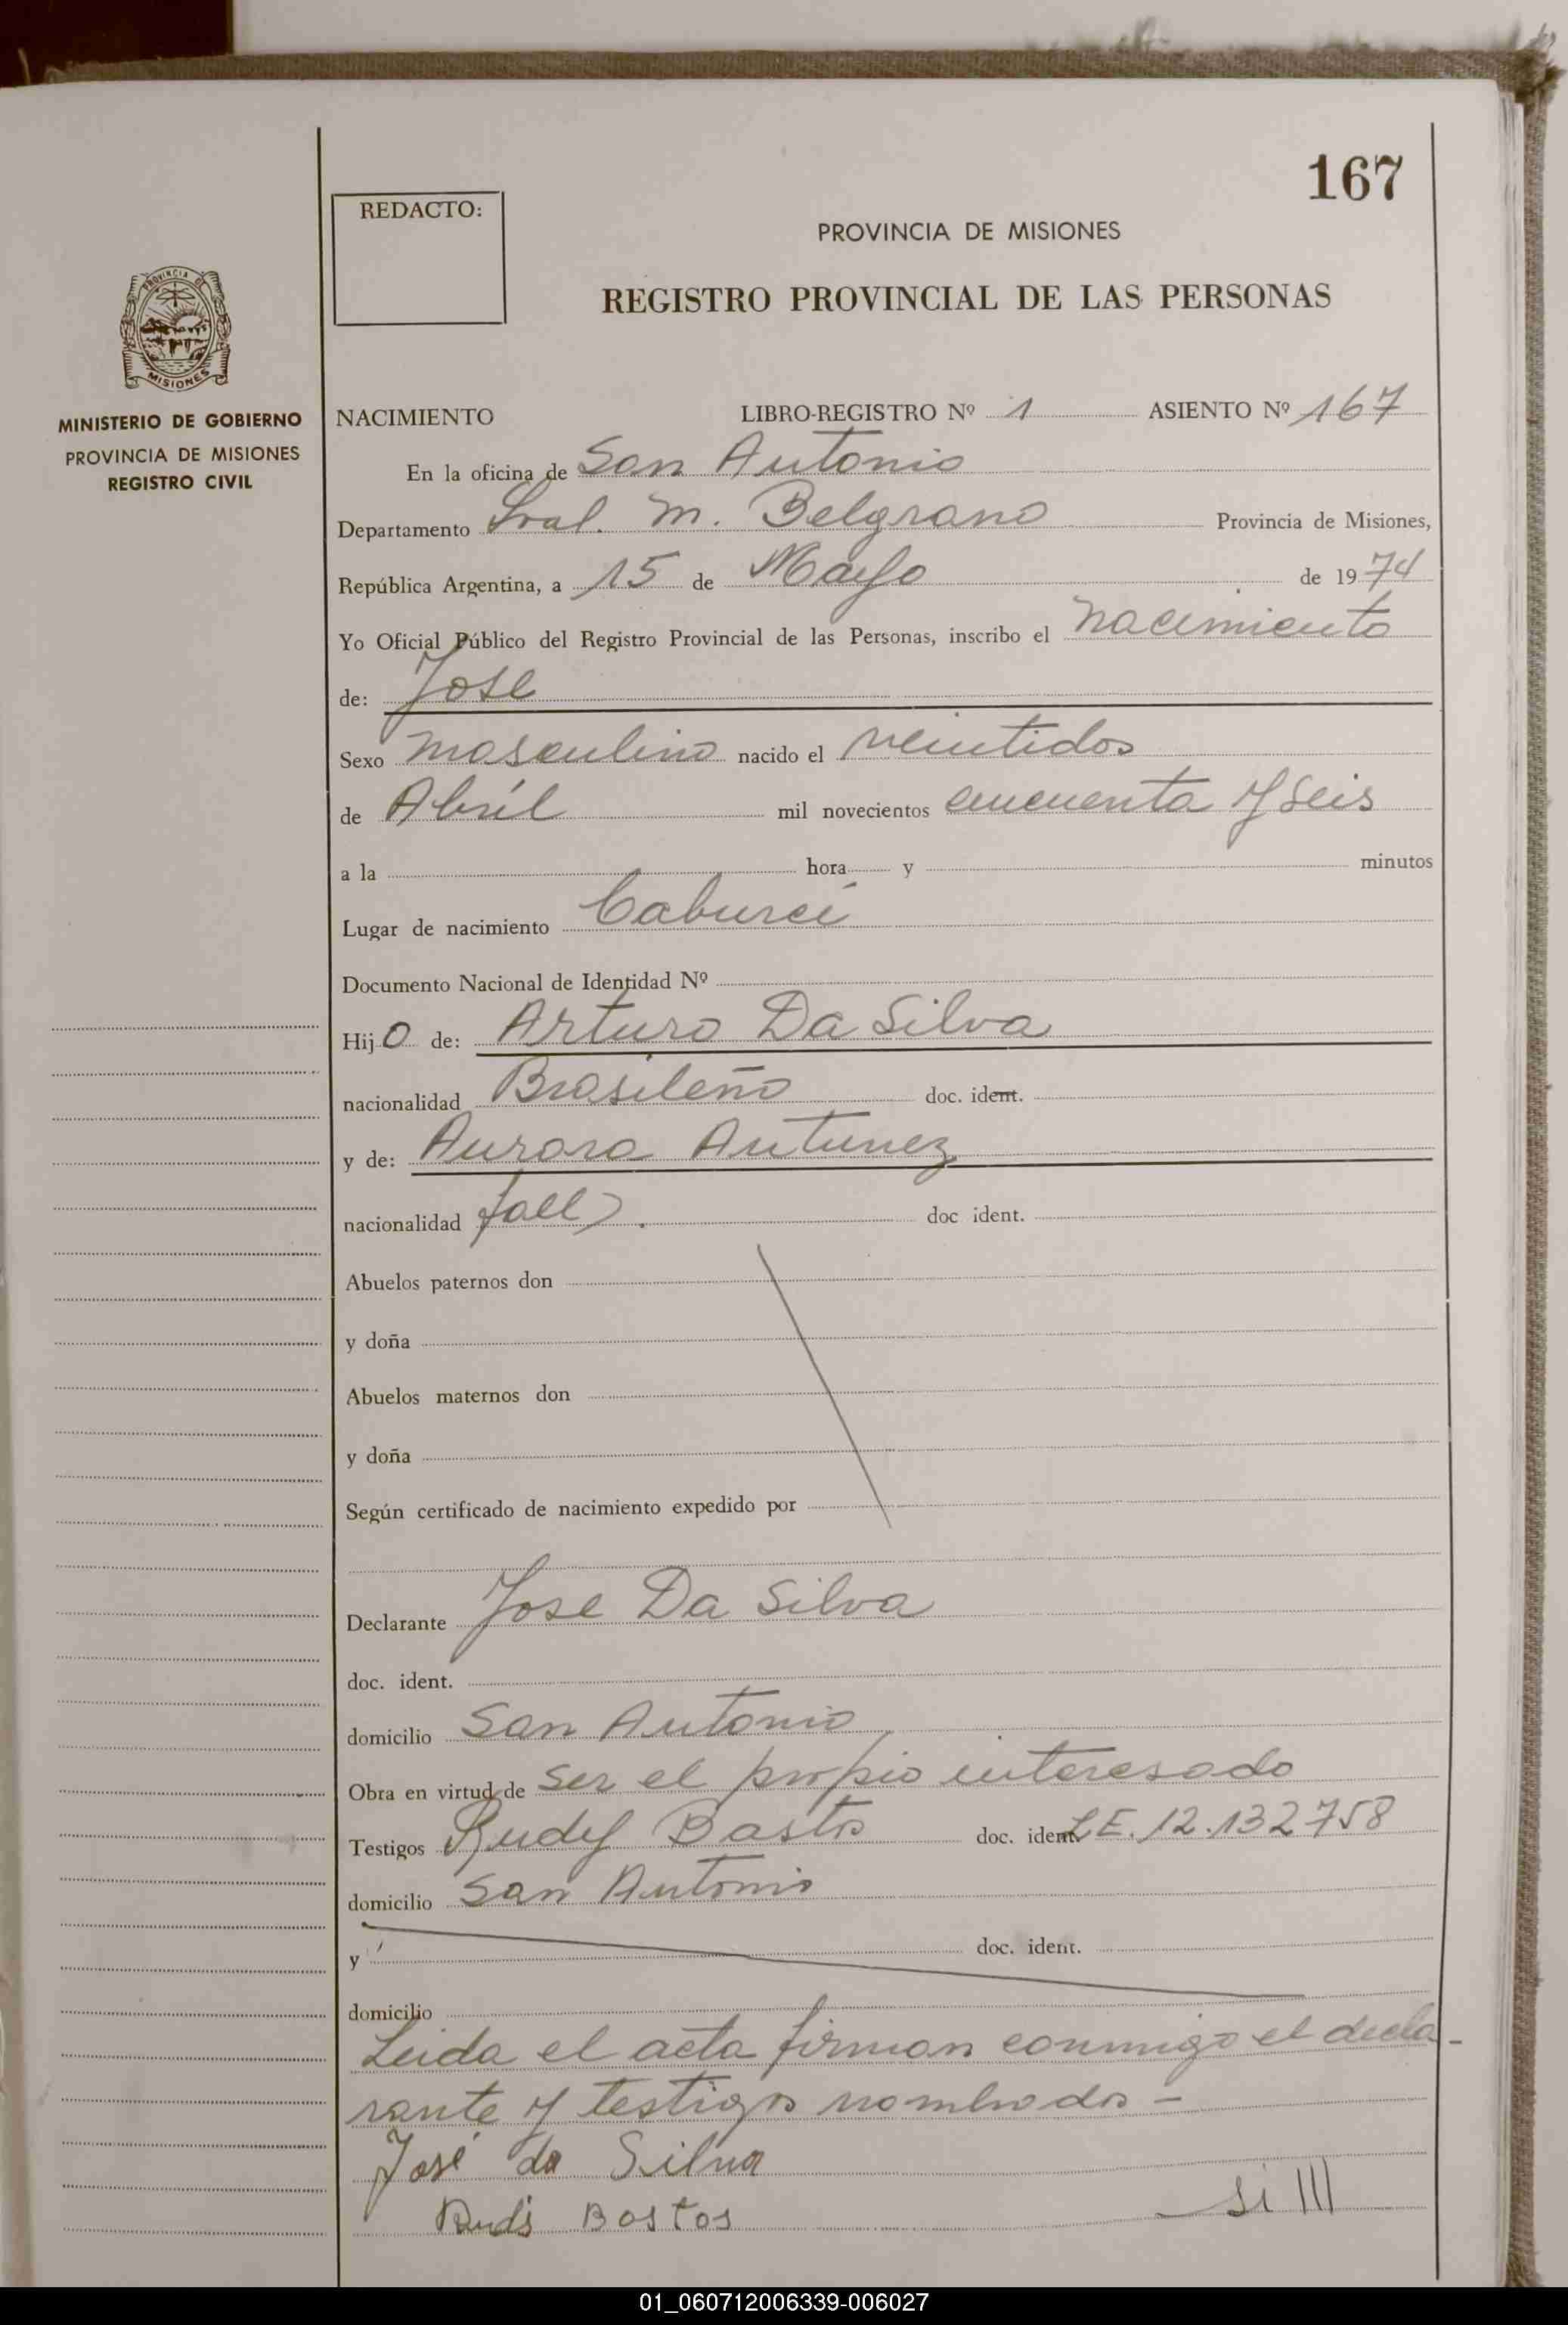 167
REDACTO:
PROVINCIA DE MISIONES
REGISTRO PROVINCIAL DE LAS PERSONAS
PROVINCIA DE
MISIONES
MINISTERIO DE GOBIERNO
PROVINCIA DE MISIONES
REGISTRO CIVIL
NACIMIENTO LIBRO-REGISTRO Nº 1 ASIENTO Nº 167
En la oficina de San Antonio
Departamento Gral. M. Belgrano Provincia de Misiones,
República Argentina, a 15 de Mayo de 1974
Yo Oficial Público del Registro Provincial de las Personas, inscribo el nacimiento
de: Jose
Sexo masculino nacido el veintidos
de Abril mil novecientos cincuenta y seis
a la hora y minutos
Lugar de nacimiento Cabureí
Documento Nacional de Identidad Nº
Hijo de: Arturo Da Silva
nacionalidad Brasileño doc. ident.
y de: Aurora Antunez
nacionalidad fall) . doc ident.
Abuelos paternos don
y doña
Abuelos maternos don
y doña
Según certificado de nacimiento expedido por
Declarante Jose Da Silva
doc. ident.
domicilio San Antonio
Obra en virtud de ser el propio interesado
Testigos Rudy Bastos doc. ident. L.E. 12.132758
domicilio San Antonio
y doc. ident.
domicilio
Leida el acta firman conmigo el decla-
rante y testigos nombrados -
José da Silva
Bastos
01_060712006339-006027